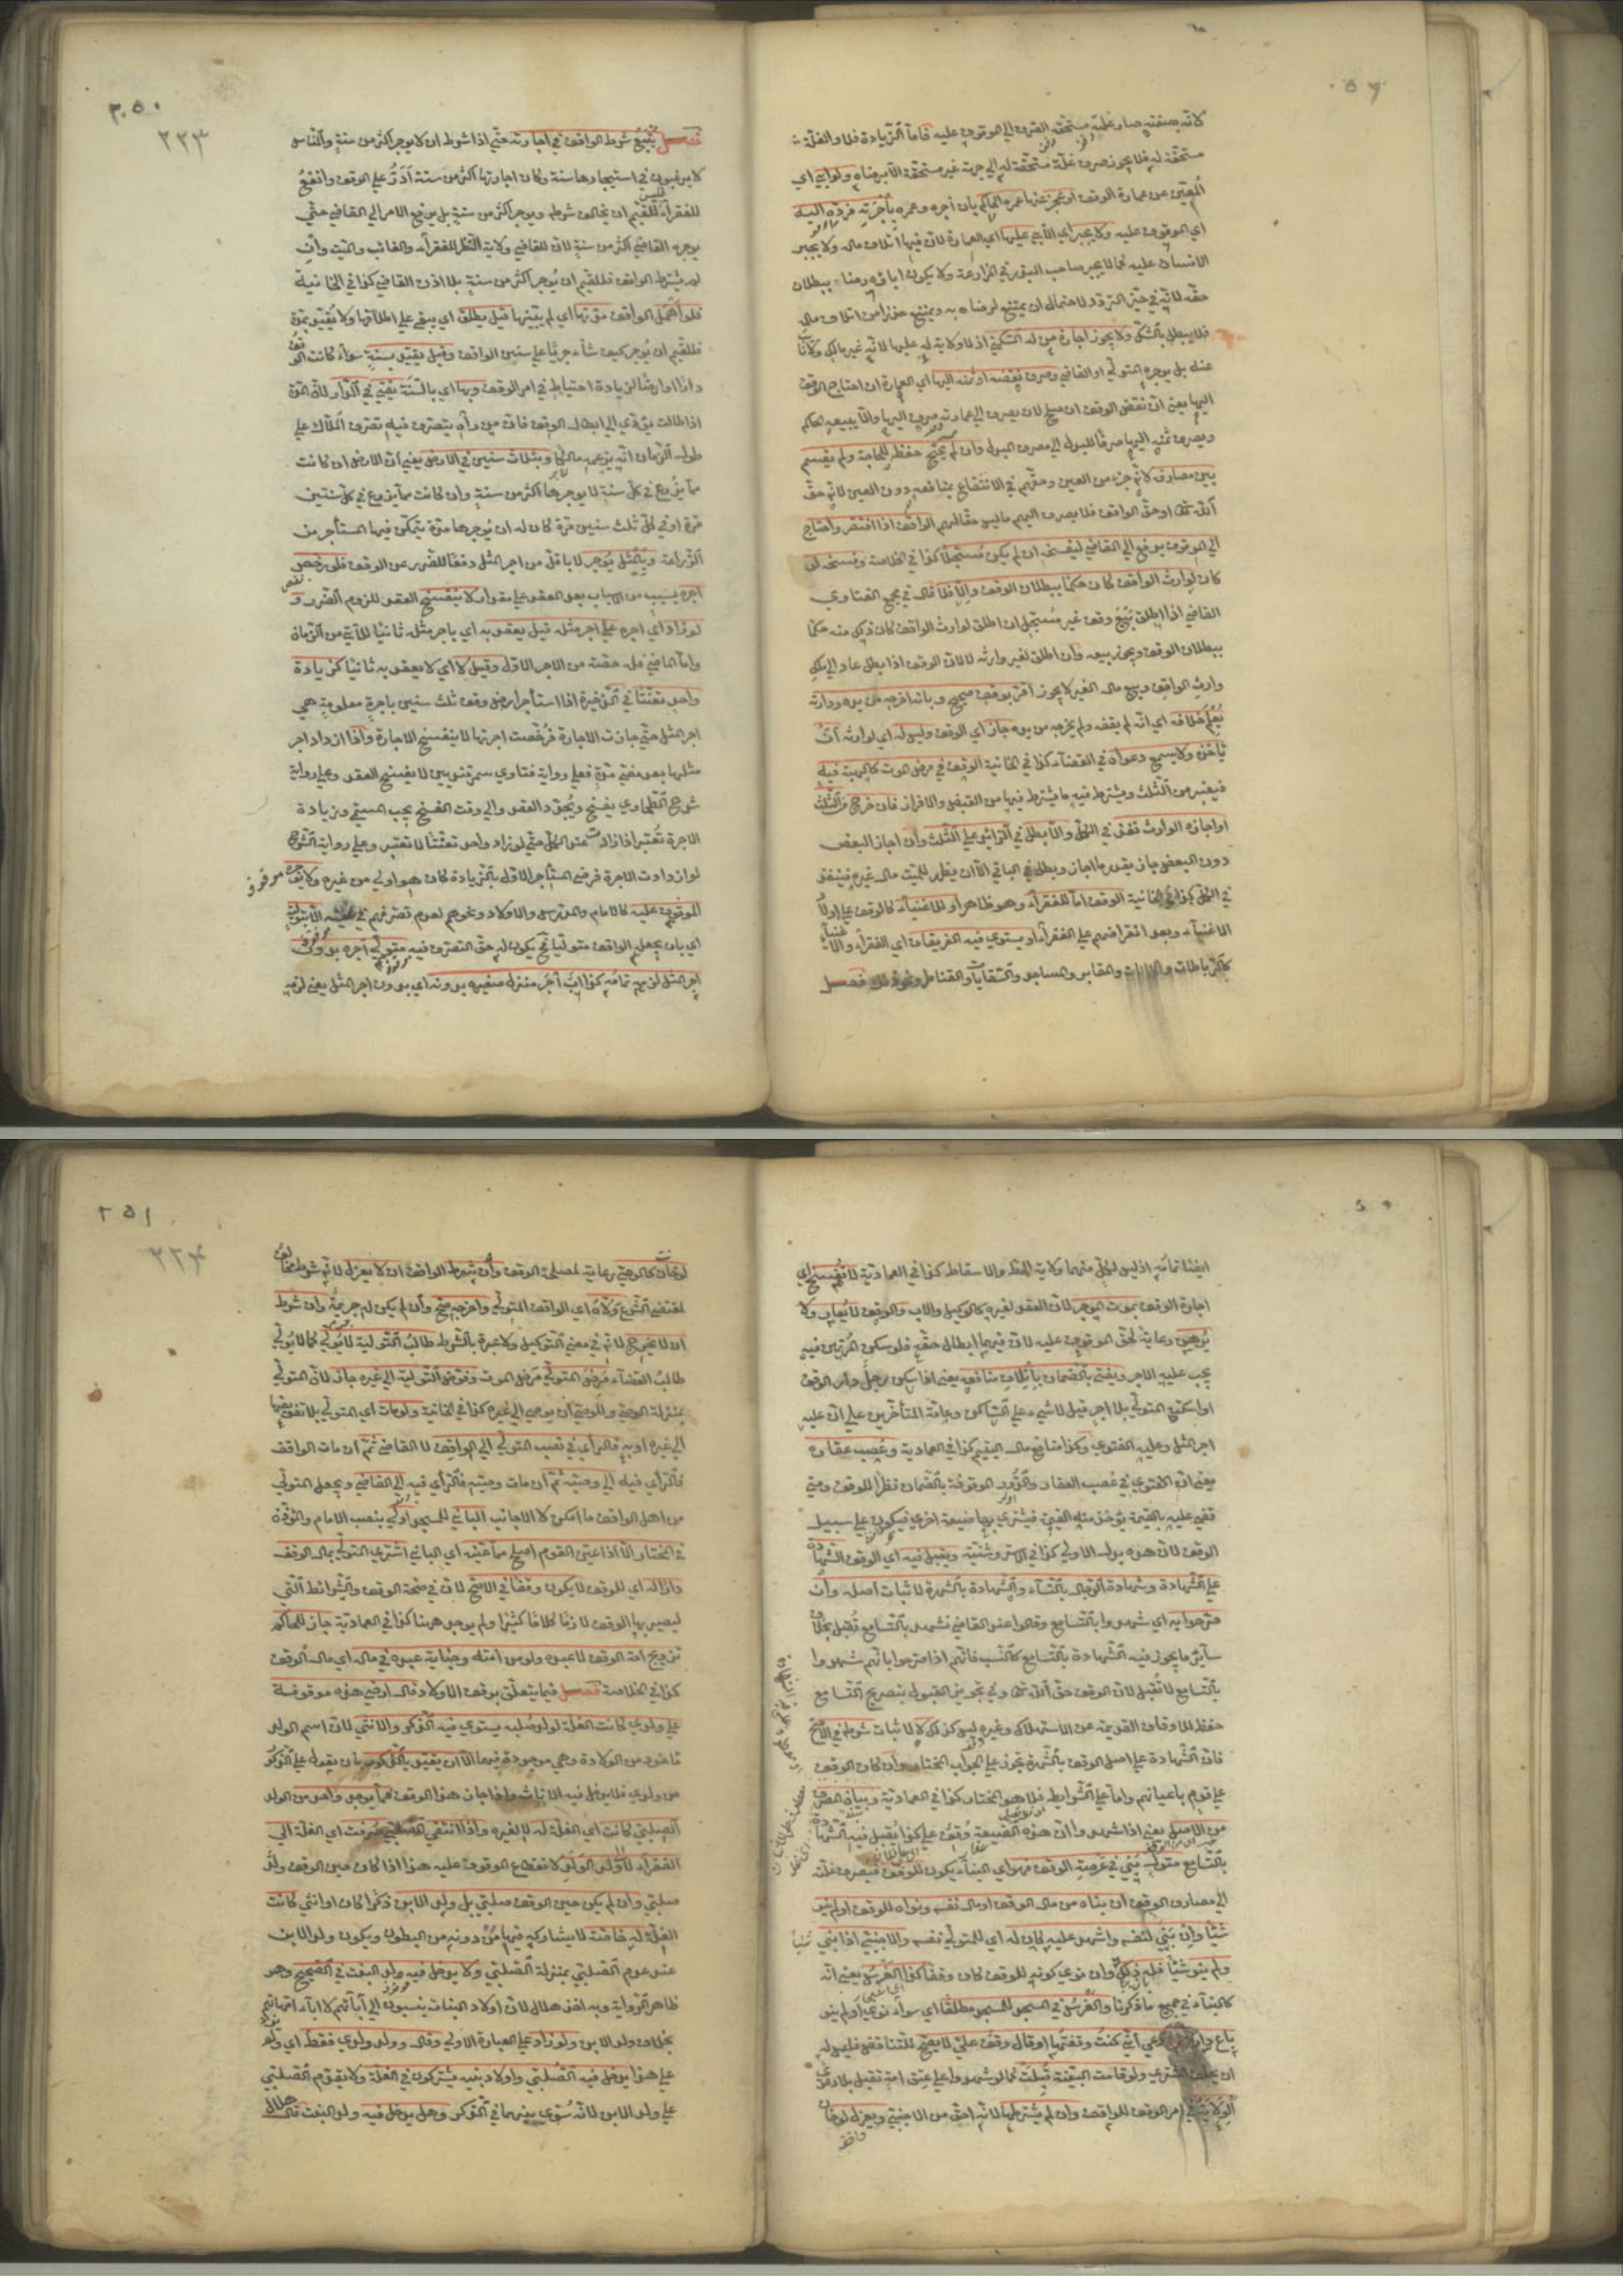 لانه بصفته صار غلته مستحقة الصرف الى الموقوف عليه فاما الزيادة فلا والغلة
مستحقة له فلا يجوز صرف غلة مستحقة له الى جهة غير مستحقة الا برضاه ولو ابى اي
المعين عن عمارة الوقف او عجز عنها عمره الحاكم بان آجره وعمره بأجرته فرده اليه
اي الموقوف عليه ولا يجبر اي الآبي عليها اي العمارة لان فيها اتلاف ماله ولا يجبر
الانسان عليه كما لا يجبر صاحب البذر في المزارعة ولا يكون اباؤه رضاء ببطلان
حقه لانه في حيز التردد لاحتمال ان يمتنع لرضاه به ويمتنع حذرا من اتلاف ماله
فلا يبطل بالشك ولا يجوز اجارة من له السكنى اذ لا ولاية له عليها لانه غير مالك ولا نائب
عنه بل يوجره المتولي او القاضي وصرف نقضه او ثمنه اليها اي العمارة ان احتاج الوقف
اليها يعني ان نقض الوقف ان صلح لان يصرف الى عمارته صرف اليها والا يبيعه الحاكم
ويصرف ثمنه اليها صرفا للبدل الى مصرف المبدل وان لم يحتج حفظ للحاجة ولم يقسم
بين مصارفه لانه جزء من العين وحقهم في الانتفاع بمنافعه دون العين لانه حق
الله تعالى او حق الواقف فلا يصرف اليهم ما ليس حقا لهم الواقف اذا افتقر واحتاج
الى الموقوف يرفع الى القاضي ليفسخه ان لم يكن مسجلا كذا في الخلاصة وفسخه لو
كان لوارث الواقف كان حكما ببطلان الوقف والا فلا قال في مجمع الفتاوى
القاضي اذا اطلق بيع وقف غير مسجل ان اطلق لوارث الواقف كان ذلك منه حكما
ببطلان الوقف ويجوز بيعه وان اطلق لغير وارثه لا لان الوقف اذا بطل عاد الى ملك
وارث الواقف وبيع مال الغير لا يجوز اقر بوقف صحيح وبانه اخرجه من يده ووارثه
يعلم خلافه اي انه لم يقفه ولم يخرجه من يده جاز اي الوقف وليس له اي لوارثه ان
ياخذه ولا يسمع دعواه في القضاء كذا في الخانية الوقف في مرض الموت كالهبة فيه
فيعتبر من الثلث ويشترط فيه ما يشترط فيها من القبض والافراز فان خرج من الثلث
او اجازه الوارث نفذ في الكل والا بطل في الزائد على الثلث وان اجاز البعض
دون البعض جاز بقدر ما اجاز وبطل في الباقي الا ان يظهر للميت مال غيره فينفذ
في الكل كذا في الخانية الوقف اما للفقراء وهو ظاهر او للاغنياء كالوقف على اولاد
الاغنياء وبعد انقراضهم على الفقراء او يستوي فيه الفريقان اي الفقراء والاغنياء
كالرباطات والخانات والمقابر والمساجد والسقايات والقناطر ونحو ذلك فصل
٣٥٠
٢٢٣
فصل يتبع شرط الواقف في اجارته حتى اذا شرط ان لا يوجر اكثر من سنة والناس
لا يرغبون في استيجارها سنة وكان اجارتها اكثر من سنة ادر على الوقف وانفع
للفقراء فليس للقيم ان يخالف شرطه ويوجر اكثر من سنة بل يرفع الامر الى القاضي حتى
يوجره القاضي اكثر من سنة لان للقاضي ولاية النظر للفقراء والغائب والميت وان
لم يشترط الواقف فللقيم ان يوجر اكثر من سنة بلا اذن القاضي كذا في الخانية
فلو اهمل الواقف مدتها اي لم يبينها قيل يطلق اي يبقى على اطلاقها ولا يقيد بمدة
فللقيم ان يوجر كيف شاء جريا على سنن الواقف وقيل يقيد بسنة سواء كانت الوقف
دارا او ارضا لزيادة احتياط في امر الوقف وبها اي بالسنة يفتى في الدار لان المدة
اذا طالت تؤدي الى ابطال الوقف فان من رآه يتصرف فيه تصرف الملاك على
طول الزمان انه يزعمه مالكا وبثلاث سنين في الارض يعني ان الارض ان كانت
مما يزرع في كل سنة لا يوجرها اكثر من سنة وان كانت مما يزرع في كل سنتين
مرة او في كل ثلث سنين مرة كان له ان يوجرها مدة يتمكن فيها المستأجر من
الزراعة وبالمثل يوجر لا باقل من اجر المثل دفعا للضرر عن الوقف فلو رخص
اجره بسبب من الاسباب بعد العقد على مقدار لا ينفسخ العقد للزوم الضرر و
لو زاد اي اجره على اجر مثله قيل يعقد به اي باجر مثله ثانيا للآتي من الزمان
واما الماضي فله حصته من الاجر الاول وقيل لا اي لا يعقد به ثانيا كزيادة
واحد تعنتا في الذخيرة اذا استأجر ارض وقف ثلث سنين باجرة معلومة هي
اجر المثل حتى جازت الاجارة فرخصت اجرتها لا ينفسخ الاجارة واذا ازداد اجر
مثلها بعد مضي مدة فعلى رواية فتاوى سمرقنديين لا يفسخ العقد وعلى رواية
شرح الطحاوي يفسخ ويجدد العقد والى وقت الفسخ يجب المسمى وزيادة
الاجرة تعتبر اذا زادت عند الكل حتى لو زاد واحد تعنتا لا تعتبر وعلى رواية الشرح
لو ازدادت الاجرة فرضي المستأجر الاول بالزيادة كان هو اولى من غيره ولا يوجره
الموقوف عليه كالامام والمدرس والاولاد ونحوهم لعدم تصرفهم في عينه الا بتولية
اي بان يجعله الواقف متوليا فح يكون له حق التصرف فيه متولي آجره بدون
اجر المثل لزمه تمامه كذا اب آجر منزل صغيره بدونه اي بدون اجر المثل يعني لزمه
ايضا تمامه اذ ليس لكل منهما ولاية الحط والاسقاط كذا في العمادية لا تنفسخ اي
اجارة الوقف بموت الموجر لان العقد لغيره كالوكيل والاب والوقف لا يعار ولا
يرهن رعاية لحق الموقوف عليه لان فيهما ابطال حقه فلو سكن المرتهن فيه
يجب عليه الاجر ويفتى بالضمان باتلاف منافعه يعني اذا سكن رجل دار الوقف
او اسكنه المتولي بلا اجر قيل لا شيء على الساكن وعامة المتأخرين على ان عليه
اجر المثل وعليه الفتوى وكذا منافع مال اليتيم كذا في العمادية وغصب عقاره
يعني ان الفتوى في غصب العقار والدور الموقوفة بالضمان نظرا للوقف ومتى
قضي عليه بالقيمة يؤخذ منه القيمة فيشترى بها ضيعة اخرى فيكون على سبيل
الوقف لان هذه بدل الاولى كذا في الاستروشنية ويقبل فيه اي الوقف الشهادة
على الشهادة وشهادة الرجال بالنساء والشهادة بالشهرة لاثبات اصله وان
صرحوا به اي شهدوا بالتسامع وقالوا عند القاضي نشهد بالتسامع تقبل بخلاف
سائر ما يجوز فيه الشهادة بالتسامع كالنسب فانهم اذا صرحوا بانهم شهدوا
بالتسامع لا تقبل لان الوقف حق الله تعالى وفي تجويز القبول بتصريح التسامع
حفظ للاوقاف القديمة عن الاستهلاك وغيره ليس كذلك لا لاثبات شرطه في الاصح
فان الشهادة على اصل الوقف بالشهرة تجوز على الجواب المختار وان كان الوقف
على قوم باعيانهم واما على الشرائط فلا هو المختار كذا في العمادية وبيان المصرف
من الاصل يعني اذا شهدوا ان هذه الضيعة وقف على كذا يقبل فيه الشهادة
بالتسامع متول بنى في عرصة الوقف فهو اي البناء يكون للوقف فيصرف غلته
الى مصارف الوقف ان بناه من مال الوقف او مال نفسه ونواه للوقف او لم ينو
شيئا وان بنى لنفسه واشهد عليه كان له اي للمتولي نفسه والاجنبي اذا بنى
ولم ينو شيئا فله ذلك وان نوى كونه للوقف كان وقفا كذا الغرس يعني انه
كالبناء في جميع ما ذكرنا والغرس في المسجد للمسجد مطلقا اي سواء نوى او لم ينو
باع دارا ثم ادعى اني كنت وقفتها او قال وقف علي لا يصح للتناقض فليس له
ان يحلف المشتري ولو قامت البينة قبلت كما لو شهدوا على عتق امة تقبل بلا دعوى
الولاية في امر الوقف للواقف وان لم يشترطها لانه احق من الاجنبي ويعزل لو خان
٢٥١
٢٢٤
لو خان كالوصي رعاية لمصلحة الوقف وان شرط الواقف ان لا يعزل لانه شرط مخالف
لمقتضى الشرع ولاه اي الواقف المتولي واخرجه صح وان لم يكن له جريمة وان شرط
ان لا يخرج لانه في معنى التوكيل ولا عبرة بالشرط طالب التولية لا يولى كما لا يولى
طالب القضاء مرض المتولي مرض الموت وفوض التولية الى غيره جاز لان المتولي
بمنزلة الوصي وللوصي ان يوصي الى غيره كذا في الخانية ولو مات اي المتولي بلا تفويضها
الى غيره اوبه فالرأي في نصب المتولي الى الواقف لا القاضي ثم ان مات الواقف
فالرأي فيه الى وصيته ثم ان مات وصيته فالرأي فيه الى القاضي ويجعل المتولي
من اهل الواقف ما امكن لا الاجانب الباني للمسجد اولى بنصب الامام والمؤذن
في المختار الا اذا عين القوم اصلح مما عينه اي الباني اشترى المتولي بمال الوقف
دارا له اي للوقف لا يكون وقفا في الاصح لان في صحة الوقف والشرائط التي
ليصير بها الوقف لازما كلاما كثيرا ولم يوجد ههنا كذا في العمادية جاز للحاكم
تزويج امة الوقف لا عبده ولو من امته وجناية عبده في ماله اي مال الوقف
كذا في الخلاصة فصل فيما يتعلق بوقف الاولاد قال ارضي هذه موقوفة
على ولدي كانت الغلة لولد صلبه يستوي فيه الذكر والانثى لان اسم الولد
ماخوذ من الولادة وهي موجودة فيهما الا ان يقيد بالذكور بان يقول على الذكور
من ولدي فلا يدخل فيه الاناث واذا جاز هذا الوقف فما يوجد واحد من الولد
الصلبي كانت اي الغلة له لا لغيره واذا انتفى الصلبي صرفت اي الغلة الى
الفقراء لا ولد الولد لانقطاع الموقوف عليه هذا اذا كان حين الوقف ولد
صلبي وان لم يكن حين الوقف صلبي بل ولد الابن ذكرا كان او انثى كانت
الغلة له خاصة لا يشاركه فيها من دونه من البطون ويكون ولد الابن
عند عدم الصلبي بمنزلة الصلبي ولا يدخل فيه ولد البنت في الصحيح وهو
ظاهر الرواية وبه اخذ هلال لان اولاد البنات ينسبون الى آبائهم لا اباء امهاتهم
بخلاف ولد الابن ولو زاد على العبارة الاولى وقال وولد ولدي فقط اي ولم يزد
على هذا يدخل فيه الصلبي واولاد بنيه يشتركون في الغلة ولا يقدم الصلبي
على ولد الابن لانه سوى بينهما في الذكر وهل يدخل فيه ولد البنت قال هلال